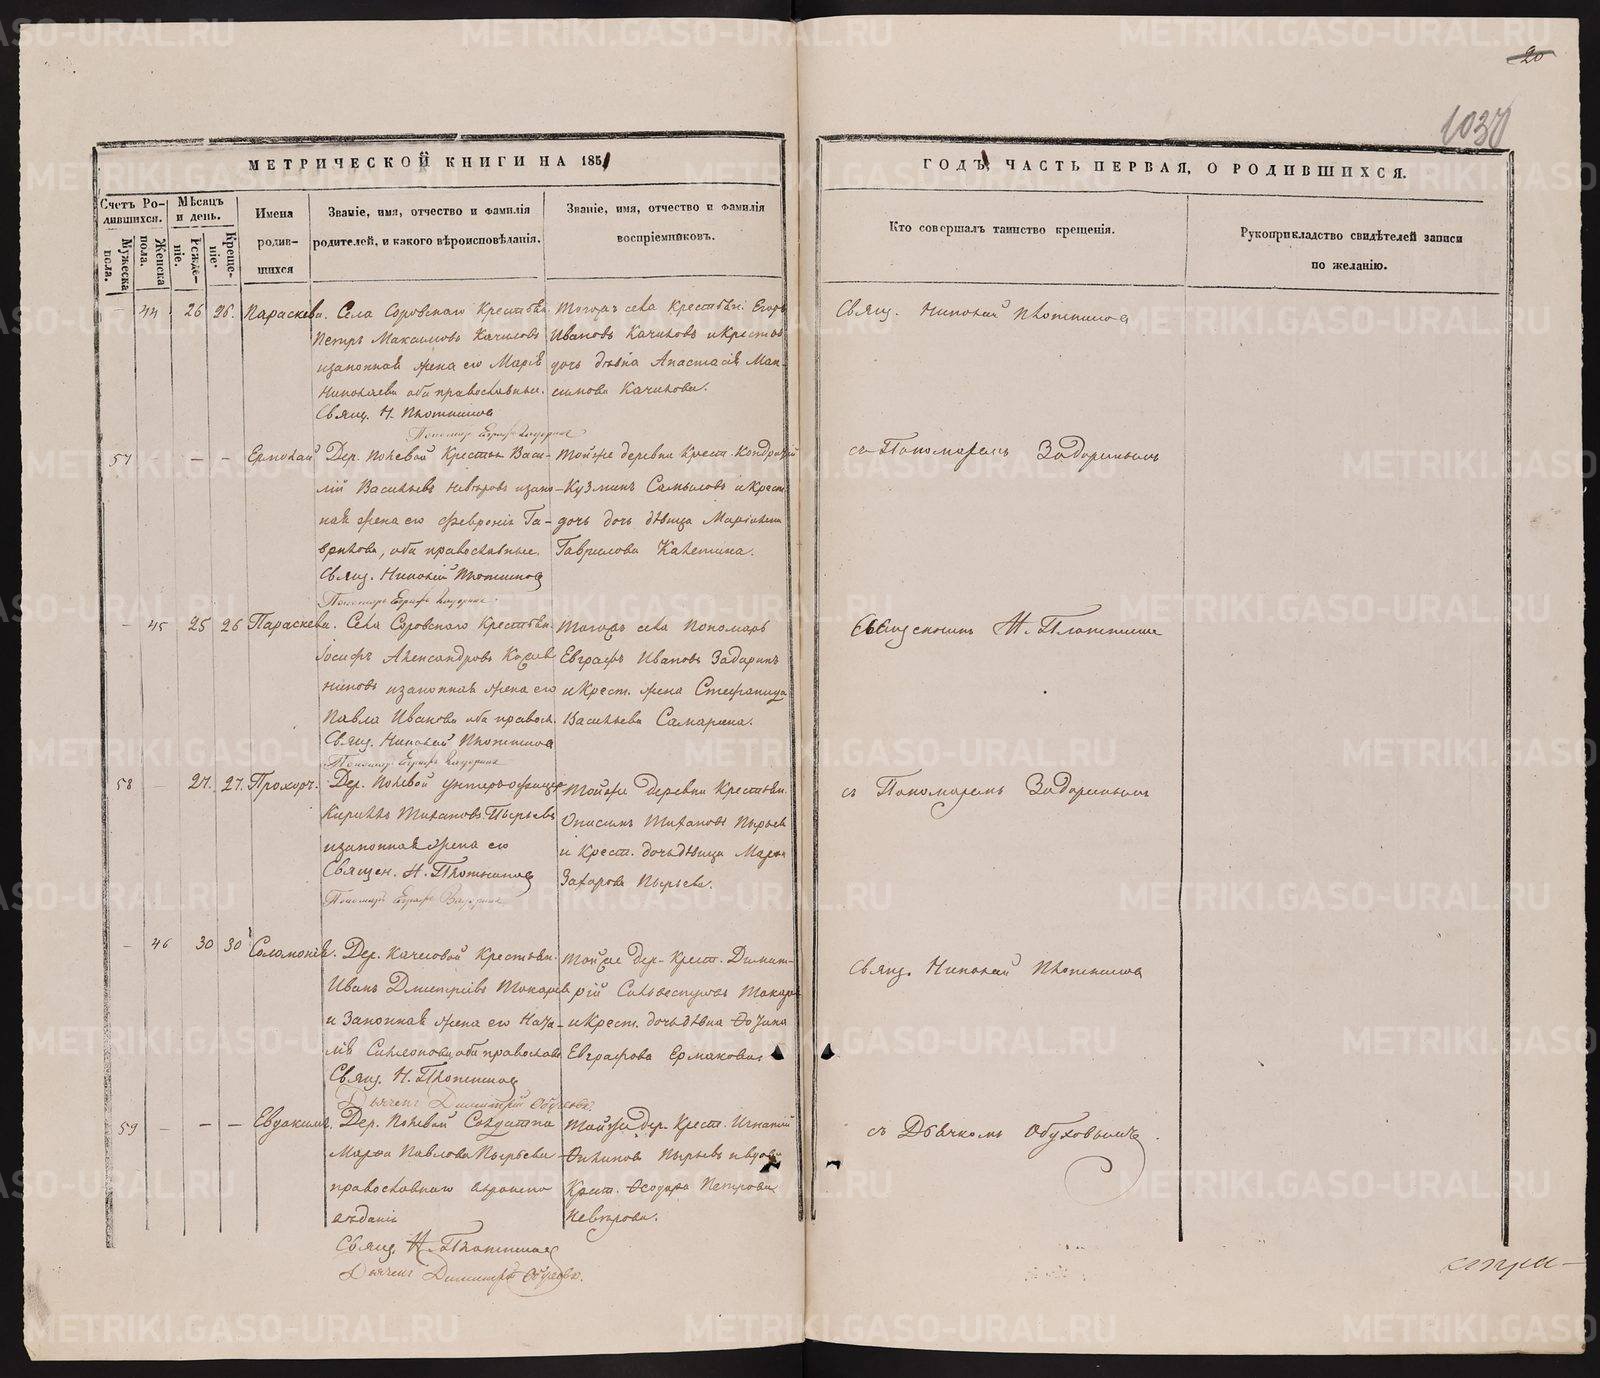 20
1037
МЕТРИЧЕСКОЙ КНИГИ НА 1851
ГОДЪ, ЧАСТЬ ПЕРВАЯ, О РОДИВШИХСЯ.
Счетъ Ро-
дившихся.
Мужеска
пола.
Женска
пола.
Мѣсяцъ
и день.
Рожде-
ніе.
Креще-
ніе.
Имена
родив-
шихся
Званіе, имя, отчество и фамилія
родителей, и какого вѣроисповѣданія.
Званіе, имя, отчество и фамилія
воспріемниковъ.
Кто совершалъ таинство крещенія.
Рукоприкладство свидѣтелей записи
по желанію.
44 26 26. Параскева.
Села Соровскаго Крестьян.
Петръ Максимовъ Качиловъ
изаконная жена его Марія
Николаева оба православные.
Свящ. Н. Плотниковъ
Тогожъ села Крестьян. Егоръ
Ивановъ Качиловъ и Крестьян.
дочь дѣвка Анастасія Мак-
симова Качилова.
Свящ. Николай Плотниковъ
57 — — Ермолай
Дер. Полевой Крестьян. Васи-
лій Васильевъ Невѣровъ изако-
ная жена его Февронія Га-
врилова, оба православные.
Свящ. Николай Плотниковъ
Тойже деревни Крест. Кондратій
Кузминъ Самыловъ и Крест.
дочь дочь дѣвица Маріамна
Гаврилова Калетина.
съ Пономаремъ Задоринымъ
— 45 25 26 Параскева.
Села Соровскаго Крестьян.
Іосифъ Александровъ
изаконная жена его
Павла Иванова оба правосл.
Свящ. Николай Плотниковъ
Тогожъ села Пономарь
Евграфъ Ивановъ Задоринъ
и Крест. жена Стефанида
Васильева Самарина.
Священникъ Н. Плотниковъ
58 — 27. 27. Прохоръ.
Дер. Полевой унтеръ-офицеръ
Кириллъ Пырьевъ
изаконная жена его
Священ. Н. Плотниковъ
Тойже деревни Крестьян.
Пырьевъ
и Крест. дочь дѣвица Марѳа
Захарова Пырьева.
съ Пономаремъ Задоринымъ
— 46 30 30 Соломонія.
Дер. Качесовой Крестьян.
Иванъ Дмитріевъ Токаревъ
и Законная жена его Ната-
лія Симеонова, оба православ.
Свящ. Н. Плотниковъ
Дьячекъ Димитрій Обуховъ.
Тойже дер. Крест. Димит-
рій Сильвестровъ Токаревъ
и Крест. дочь дѣвка
Евграфова Ермакова.
Свящ. Николай Плотниковъ
59 — — — Евдокимъ.
Дер. Полевой Солдатка
Марѳа Павлова Пырьева
православнаго вѣроиспо
вѣданія
Свящ. Н. Плотниковъ
Дьячекъ Димитрій Обуховъ.
Тойже дер. Крест. Игнатій
Филиповъ Пырьевъ и вдова
Крест. Ѳеодора Петрова
Невѣрова.
съ Дьячкомъ Обуховымъ.